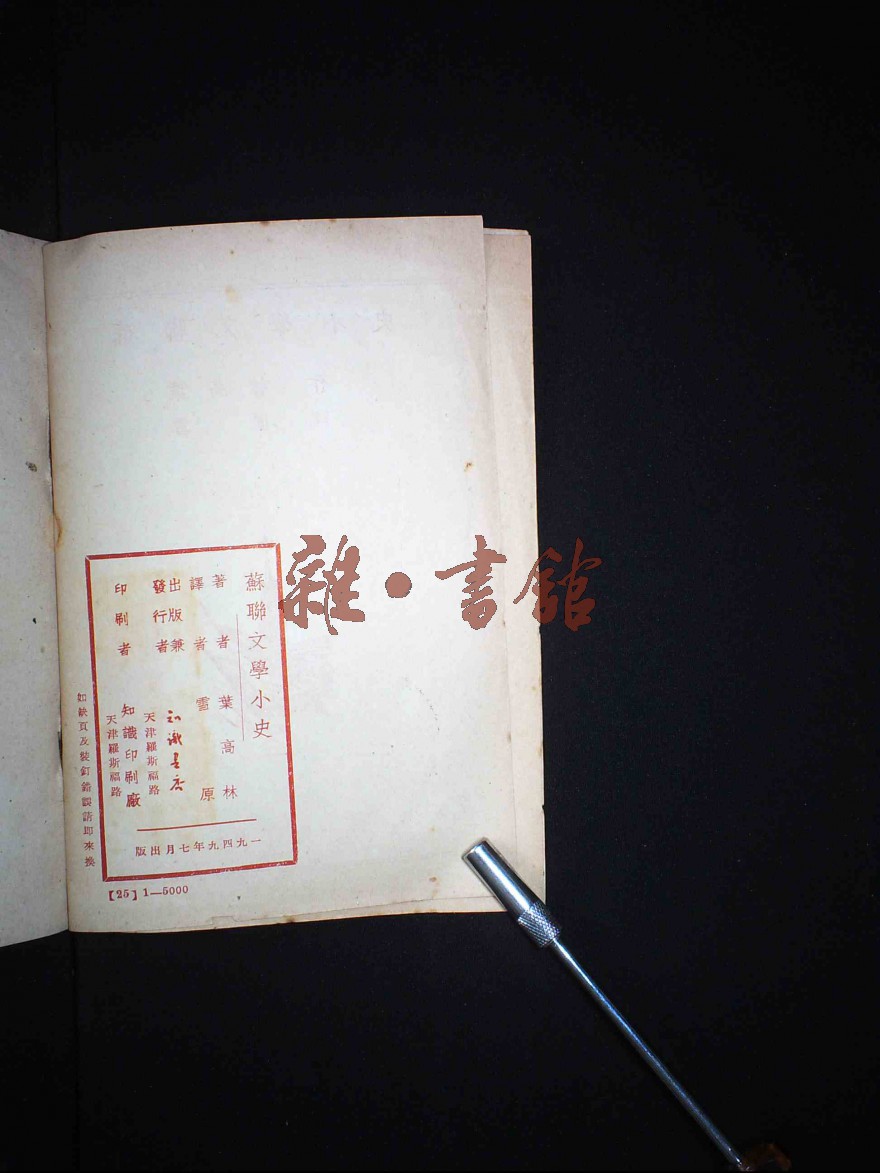 蘇聯文學小史
著者 葉高林
譯者 雪原
出版兼
發行者
知識書店
天津羅斯福路
印刷者
知識印刷廠
天津羅斯福路
一九四九年七月出版
如缺頁及裝釘錯誤請即來換
【25】1—5000
雜·書館